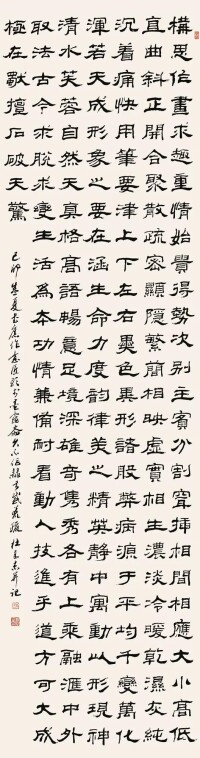 構思作畫求趣重情始貴得勢次別主賓分割穿插相間相應大小高低
直曲斜正開合聚散疏密顯隱繁簡相映虛實相生濃淡冷暖乾濕灰純
沉着痛快用筆要津上下左右墨色再形諸般弊病源于平均千變萬化
渾若天成形象之要在涵生命力度之精英静中寓動以形現神
清水芙蓉自然天真格高語暢意足境深雄奇雋秀各有上乘融滙中外
取法古今求脱求變生活為本功情兼備耐看動人技進乎道方可大成
極在獨擅石破天驚
己卯 夏 并記